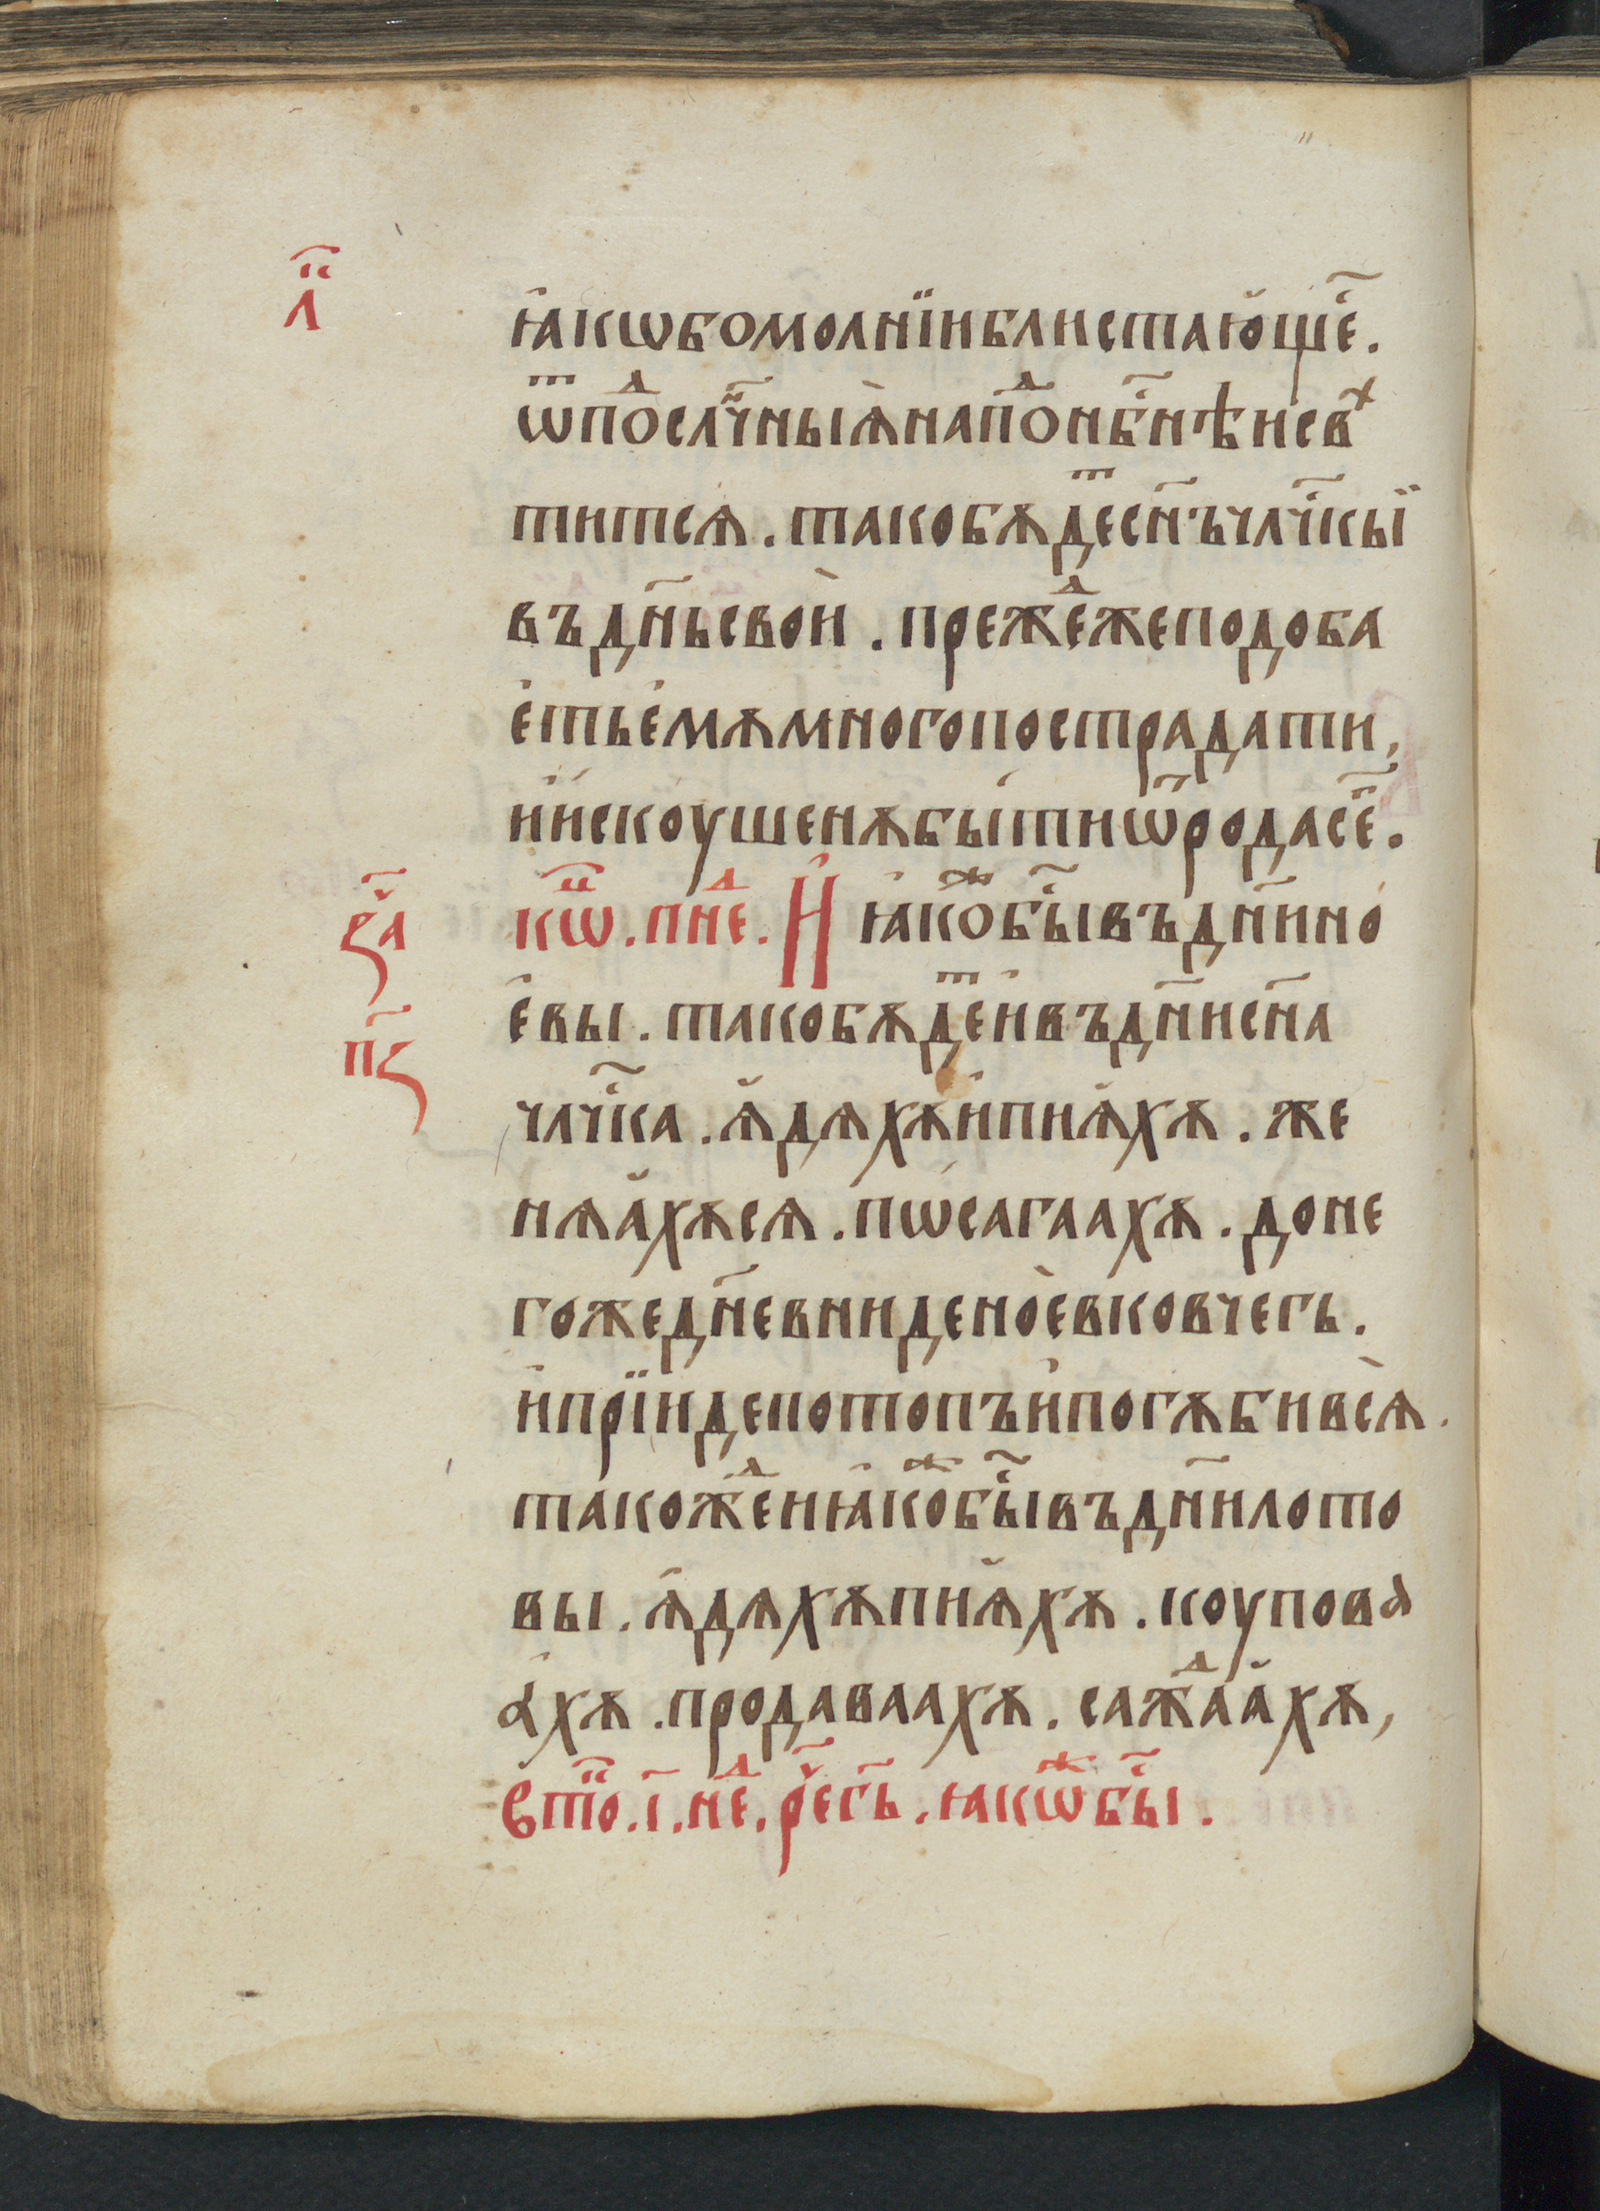 л҃
ꙗ҆кѡбомолнїиблистаю҆ще҃.
ѿпо́ⷣсл҃чныѧ҆напоⷣнб҃нѣисвⷯ
титсѧ.такобѫдеⷮсн҃ъчл҃чкыи
въдн҃ьсвои҆.прежеⷣжеподоба
е҆тьемѫмногопострадати,
и҆и҆скоушенѫбытиѿродасе҃.
кѡ҃ⷰ.пнеⷣ.И҆ ꙗ҆коⷤбы҃въдн҃ино
з҃ч҃а
е҆вы.такобѫдеⷮи҆въдн҃исн҃а
п҃ѕ
чл҃чка.ꙗ҆дѧхѫи҆пиꙗ҆хѫ.же
нѧа҆хѫсѧ.пѡсагаахѫ.доне
гожедн҃евнидено̀евковчегь.
и҆прїидепотопъи҆погѫбивсѧ̀.
такожеⷣиꙗ҆коⷤбы҃въдн҃илото
вы.ꙗ҆дѧхѫпиꙗ҆хѫ.коупова
а҆хѫ.продаваахѫ.сажⷣаа҆хѫ,
втоⷬ҇.і҃.не҃ⷣ.рече҃гь.ꙗкѡⷤбы҃.